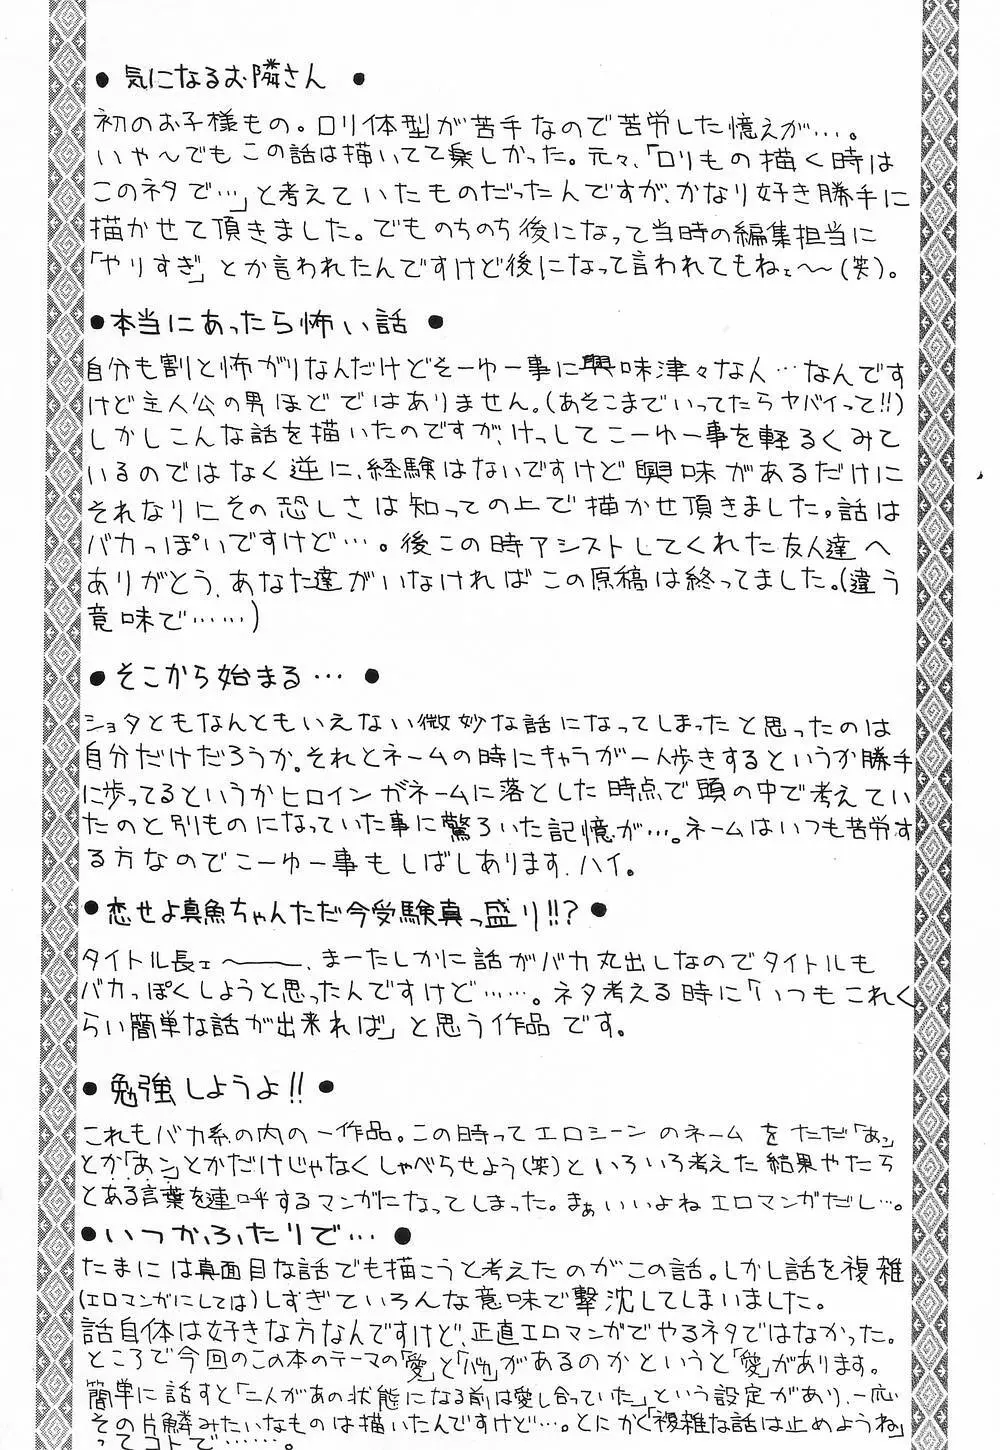 ● 気になるお隣さん ●
初のお子様もの。ロリ体型が苦手なので苦労した憶えが…。
いや〜でもこの話は描いてて楽しかった。元々、「ロリもの描く時は
このネタで…」と考えていたものだったんですが、かなり好き勝手に
描かせて頂きました。でものちのち後になって当時の編集担当に
「やりすぎ」とか言われたんですけど後になって言われてもねェ〜〜(笑)。
●本当にあったら怖い話 ●
自分も割と怖がりなんだけどそーゆー事に興味津々な人…なんです
けど主人公の男ほどではありません。(あそこまでいってたらヤバイって!!)
しかしこんな話を描いたのですが、けっしてこーゆー事を軽るくみて
いるのではなく逆に、経験はないですけど興味があるだけに
それなりにその恐しさは知っての上で描かせ頂きました。話は
バカっぽいですけど…。後この時アシストしてくれた友人達へ
ありがとう、あなた達がいなければこの原稿は終ってました。(違う
意味で……)
●そこから始まる… ●
ショタともなんともいえない微妙な話になってしまったと思ったのは
自分だけだろうか。それとネームの時にキャラが一人歩きするというか勝手
に歩ってるというかヒロインがネームに落とした時点で頭の中で考えてい
たのと別ものになっていた事に驚ろいた記憶が…。ネームはいつも苦労す
る方なのでこーゆー事もしばしあります、ハイ。
●恋せよ真魚ちゃんただ今受験真っ盛り!!?●
タイトル長ェ〜――、まーたしかに話がバカ丸出しなのでタイトルも
バカっぽくしようと思ったんですけど……。ネタ考える時に「いつもこれく
らい簡単な話が出来れば」と思う作品です。
● 勉強しようよ!! ●
これもバカ系の内の一作品。この時ってエロシーンのネームをただ「あっ」
とか「あン」とかだけじゃなくしゃべらせよう(笑)といろいろ考えた結果やたら
とある言葉を連呼するマンガになってしまった。まぁいいよねエロマンガだし…。
●いつかふたりで… ●
たまには真面目な話でも描こうと考えたのがこの話。しかし話を複雑
(エロマンガにしては)しすぎていろんな意味で撃沈してしまいました。
話自体は好きな方なんですけど、正直エロマンガでやるネタではなかった。
ところで今回のこの本のテーマの「愛」と「バカ」があるのかというと「愛」があります。
簡単に話すと「二人があの状態になる前は愛し合っていた」という設定があり、一応
その片鱗みたいなものは描いたんですけど…。とにかく「複雑な話は止めようね」
ってコトで……。